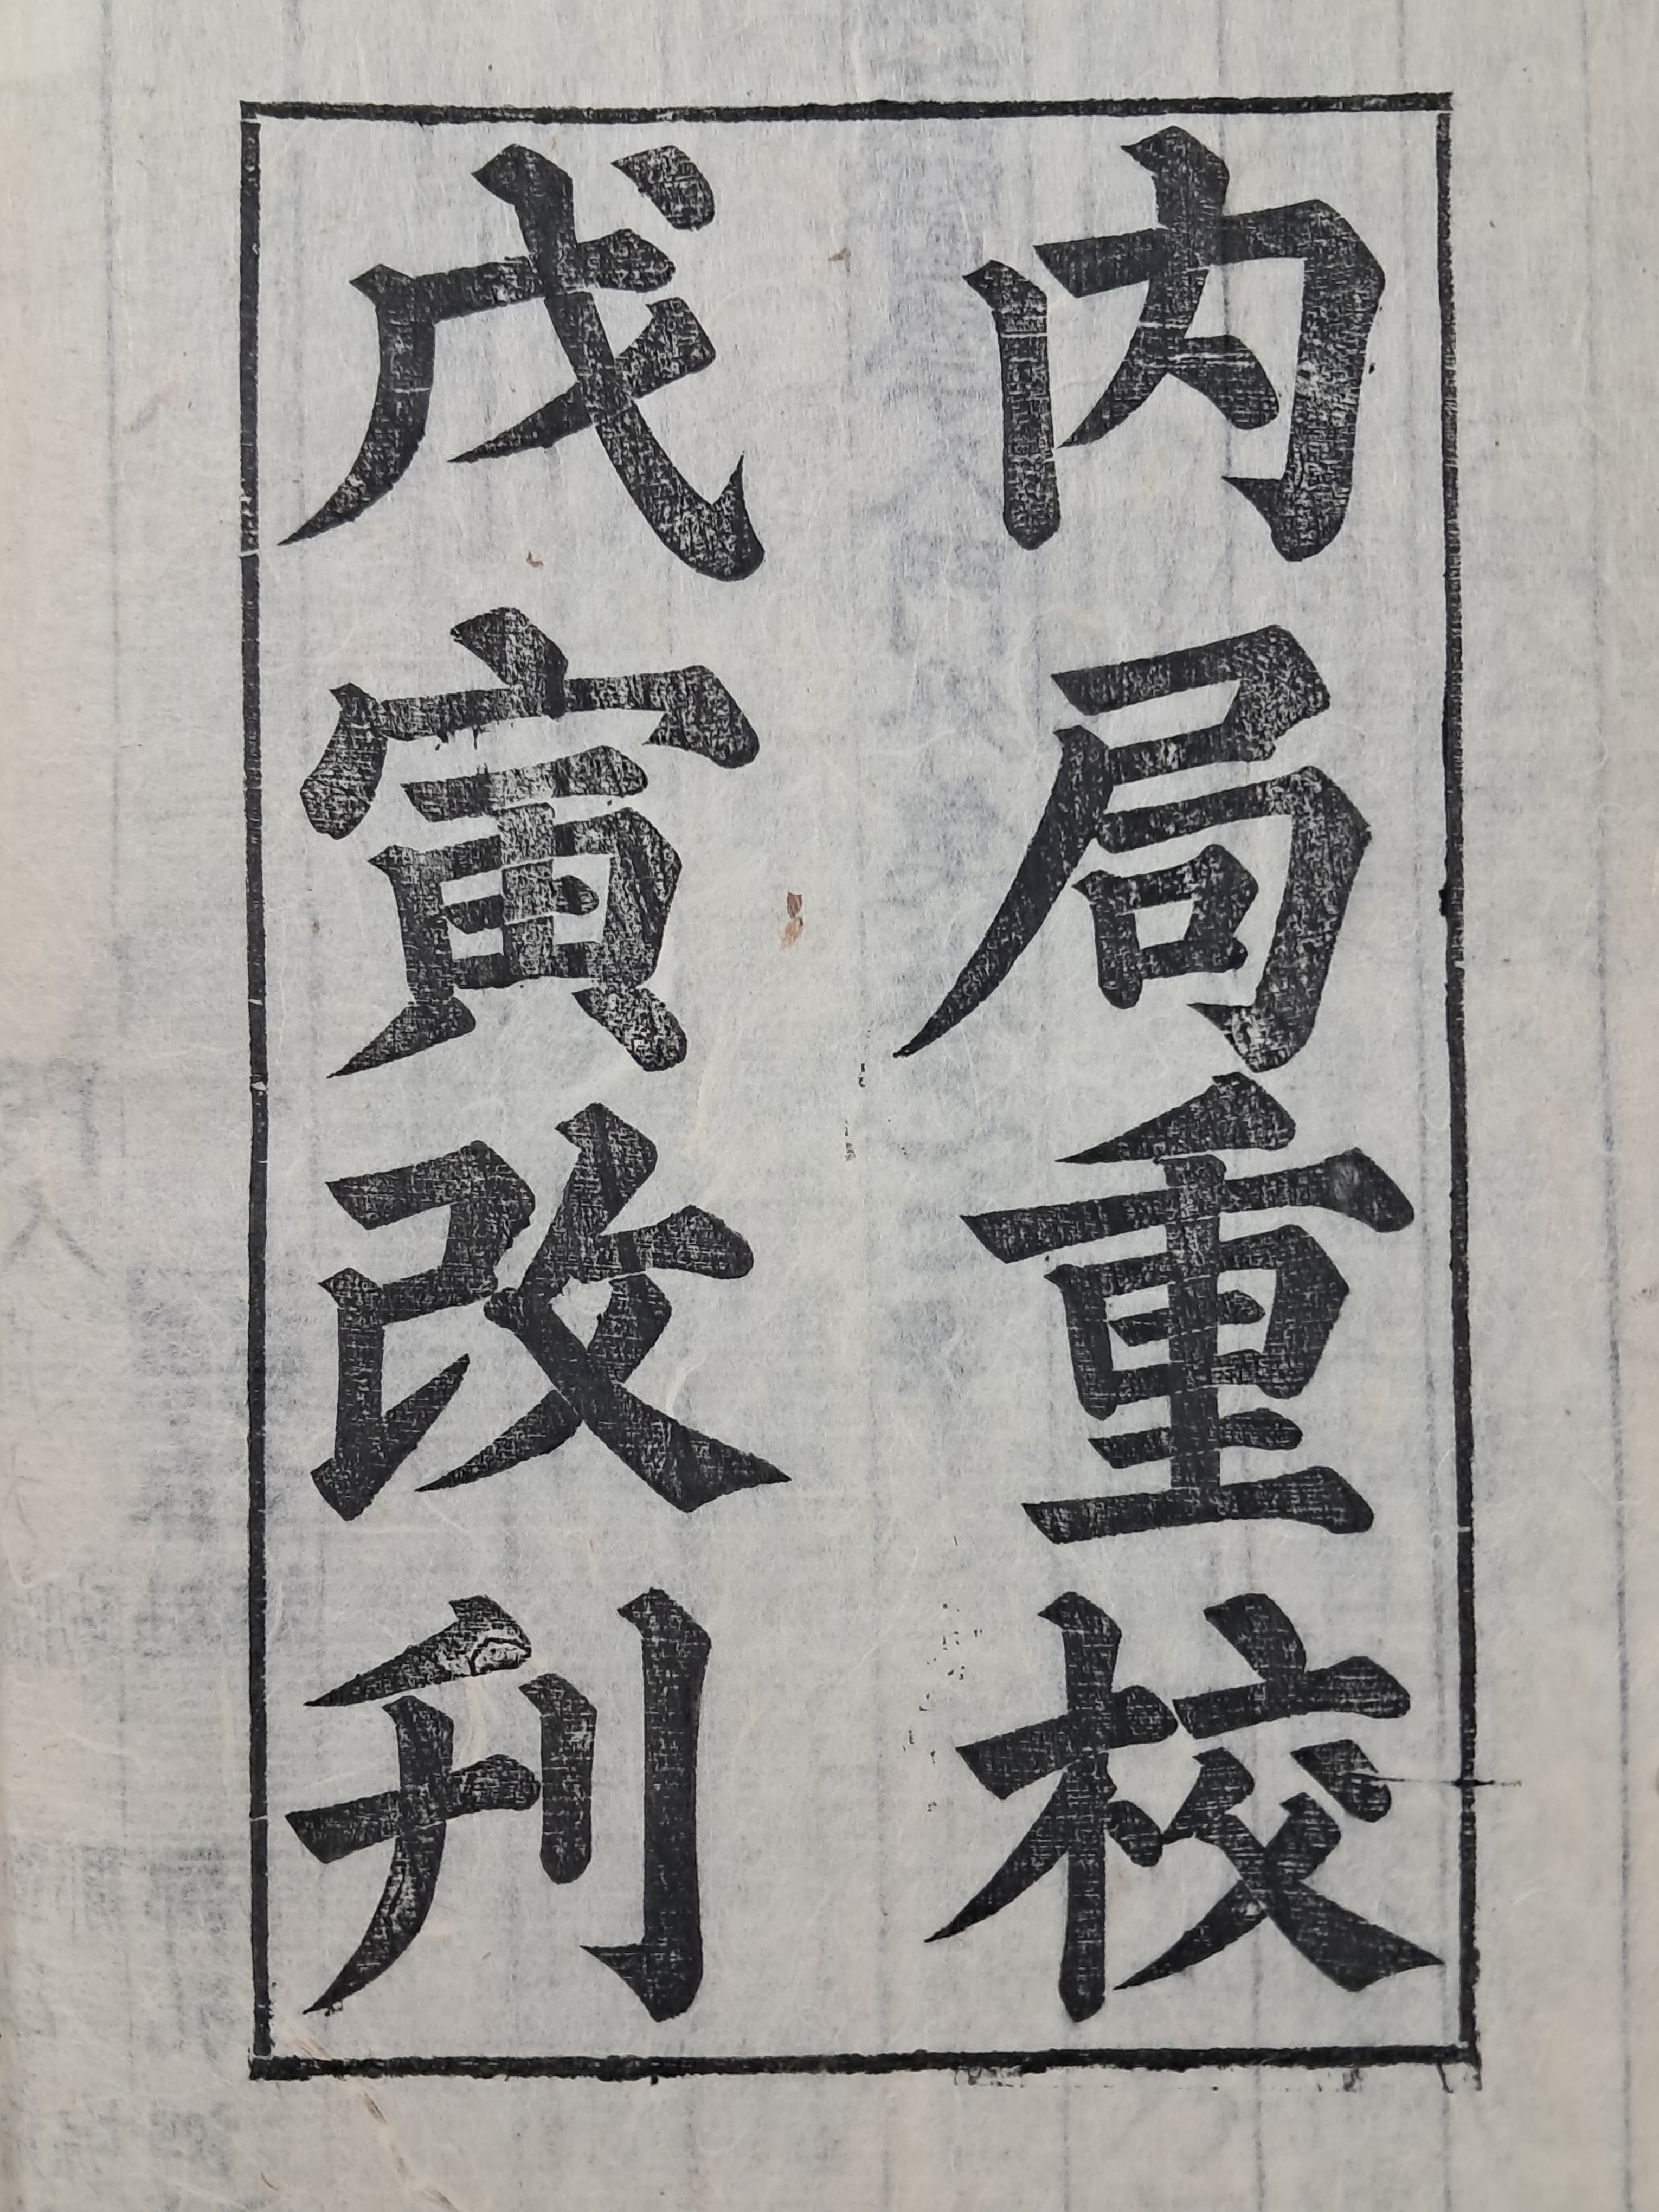 內局重校
戊寅改刋